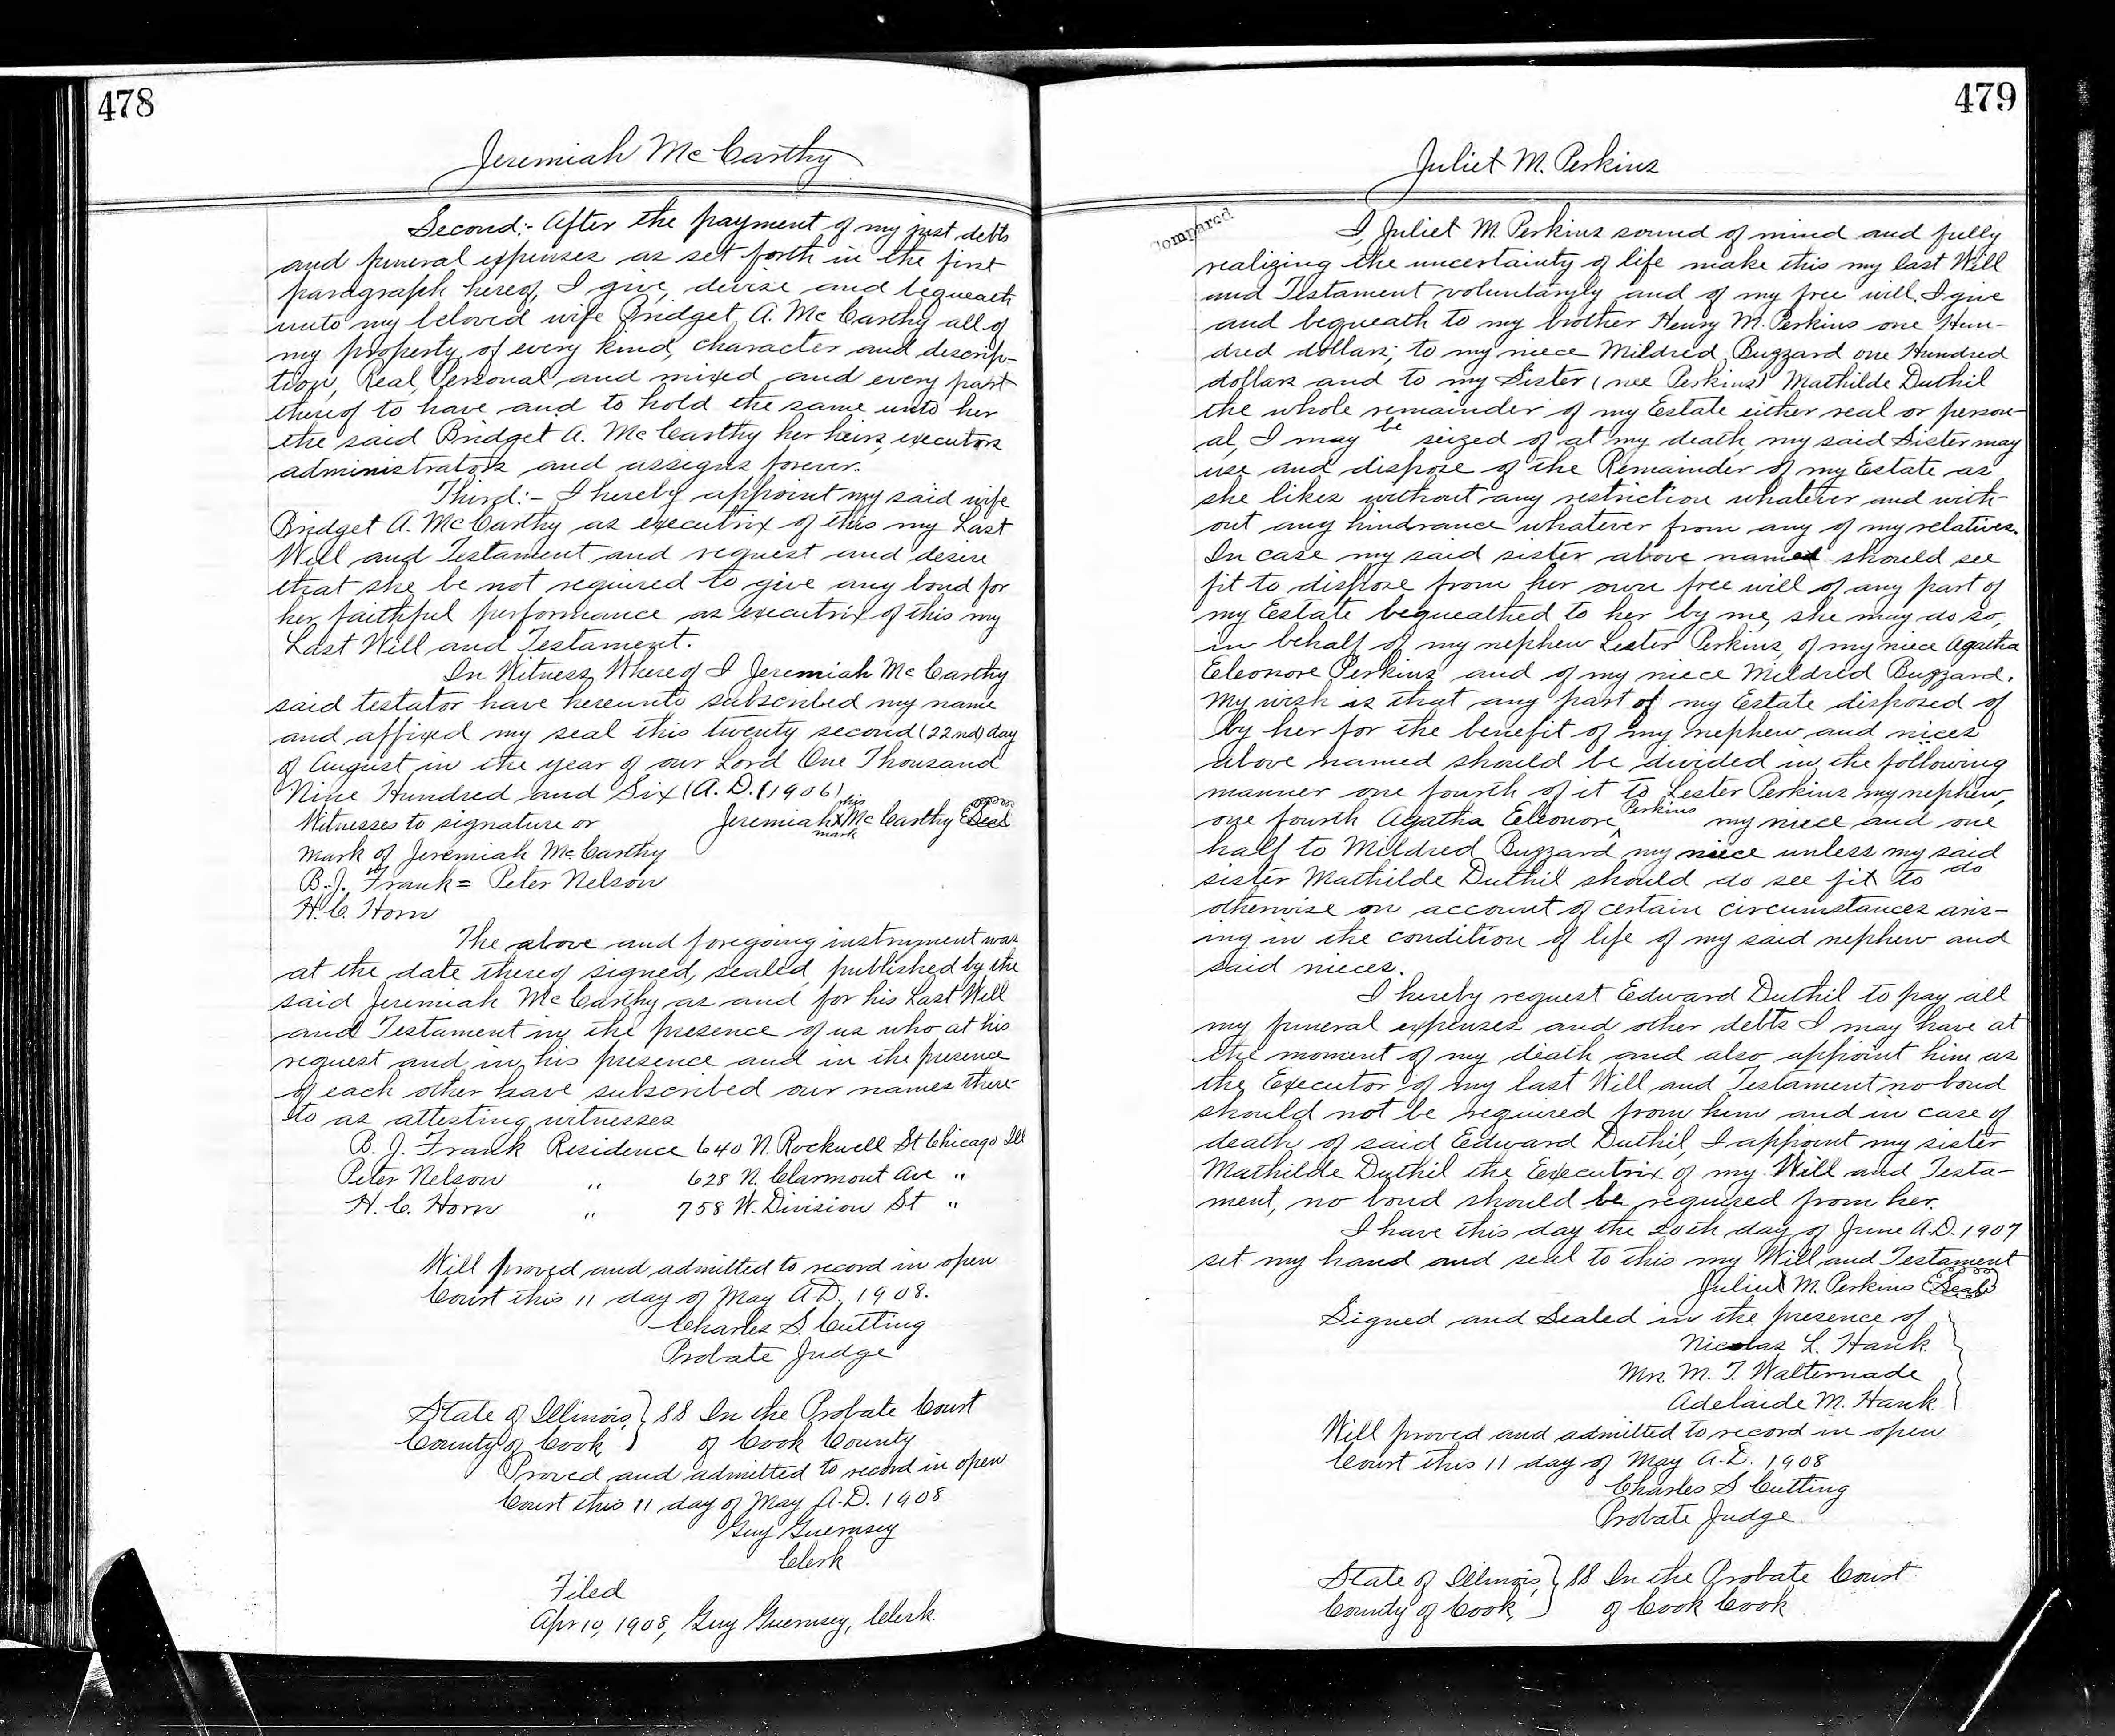 478
Jeremiah McCarthy
Second:- After the payment of my just debts
and funeral expenses as set forth in the first
paragraph hereof, I give, devise and bequeath
unto my beloved wife Bridget A. McCarthy all of
my property of every kind, character and descrip-
tion, Real, Personal and mixed and every part
thereof to have and to hold the same unto her
the said Bridget A. McCarthy her heirs, executors
administrators and assigns forever.
Third:- I hereby appoint my said wife
Bridget A. McCarthy as executrix of this my Last
Will and Testament and request and desire
that she be not required to give any bond for
her faithful performance as executrix of this my
Last Will and Testament.
In Witness Whereof I Jeremiah McCarthy
said testator have hereunto subscribed my name
and affixed my seal this twenty second (22nd) day
of August in the year of our Lord One Thousand
Nine Hundred and Six (A.D. (1906)
Witnesses to signature or Jeremiah his X mark McCarthy (Seal
mark of Jeremiah McCarthy
B.J. Frank = Peter Nelson
H.C. Horn
The above and foregoing instrument was
at the date thereof signed, sealed, published by the
said Jeremiah McCarthy as and for his Last Will
and Testament in the presence of us who at his
request and in his presence and in the presence
of each other have subscribed our names there-
to as attesting witnesses
B. J. Frank Residence 640 N. Rockwell St Chicago Ill
Peter Nelson " 628 N. Clarmont Ave "
H. C. Horn " 758 W. Division St "
Will proved and admitted to record in open
Court this 11 day of May A.D. 1908.
Charles S. Cutting
Probate Judge
State of Illinois, } SS In the Probate Court
County of Cook } of Cook County
Proved and admitted to record in open
Court this 11 day of May A.D. 1908
Guy Guernsey
Clerk
Filed
Apr 10, 1908, Guy Guernsey, Clerk.
479
Juliet M. Perkins
Compared
I, Juliet M. Perkins sound of mind and fully
realizing the uncertainty of life make this my last Will
and Testament voluntaryly and of my free will. I give
and bequeath to my brother Henry M. Perkins one Hun-
dred dollars; to my niece Mildred Buzzard one Hundred
dollars and to my Sister (nee Perkins) Mathilde Duthil
the whole remainder of my Estate either real or person-
al, I may be seized of at my death, my said Sister may
use and dispose of the Remainder of my Estate as
she likes without any restriction whatever and with-
out any hindrance whatever from any of my relatives.
In case my said sister above named should see
fit to dispose from her own free will of any part of
my Estate bequeathed to her by me, she may do so,
in behalf of my nephew Lester Perkins, of my niece Agatha
Eleonore Perkins and of my niece Mildred Buzzard.
My wish is that any part of my Estate disposed of
by her for the benefit of my nephew and nices
above named should be divided in the following
manner one fourth of it to Lester Perkins my nephew,
one fourth Agatha Eleonore Perkins my niece and one
half to Mildred Buzzard my niece unless my said
sister Mathilde Duthil should do see fit to do
otherwise on account of certain circumstances aris-
ing in the condition of life of my said nephew and
said nieces.
I hereby request Edward Duthil to pay all
my funeral expenses and other debts I may have at
the moment of my death and also appoint him as
the Executor of my last Will and Testament no bond
should not be required from him and in case of
death of said Edward Duthil, I appoint my sister
Mathilde Duthil the Executrix of my Will and Testa-
ment, no bond should be required from her.
I have this day the 20th day of June A.D. 1907
set my hand and seal to this my Will and Testament
Juliet M. Perkins (Seal)
Signed and Sealed in the presence of
Nicolas L. Hank
Mrs. M. T. Walternade
Adelaide M. Hank.
Will proved and admitted to record in open
Court this 11 day of May A.D. 1908
Charles S Cutting
Probate Judge.
State of Illinois, } SS In the Probate Court
County of Cook, } of Cook Cook